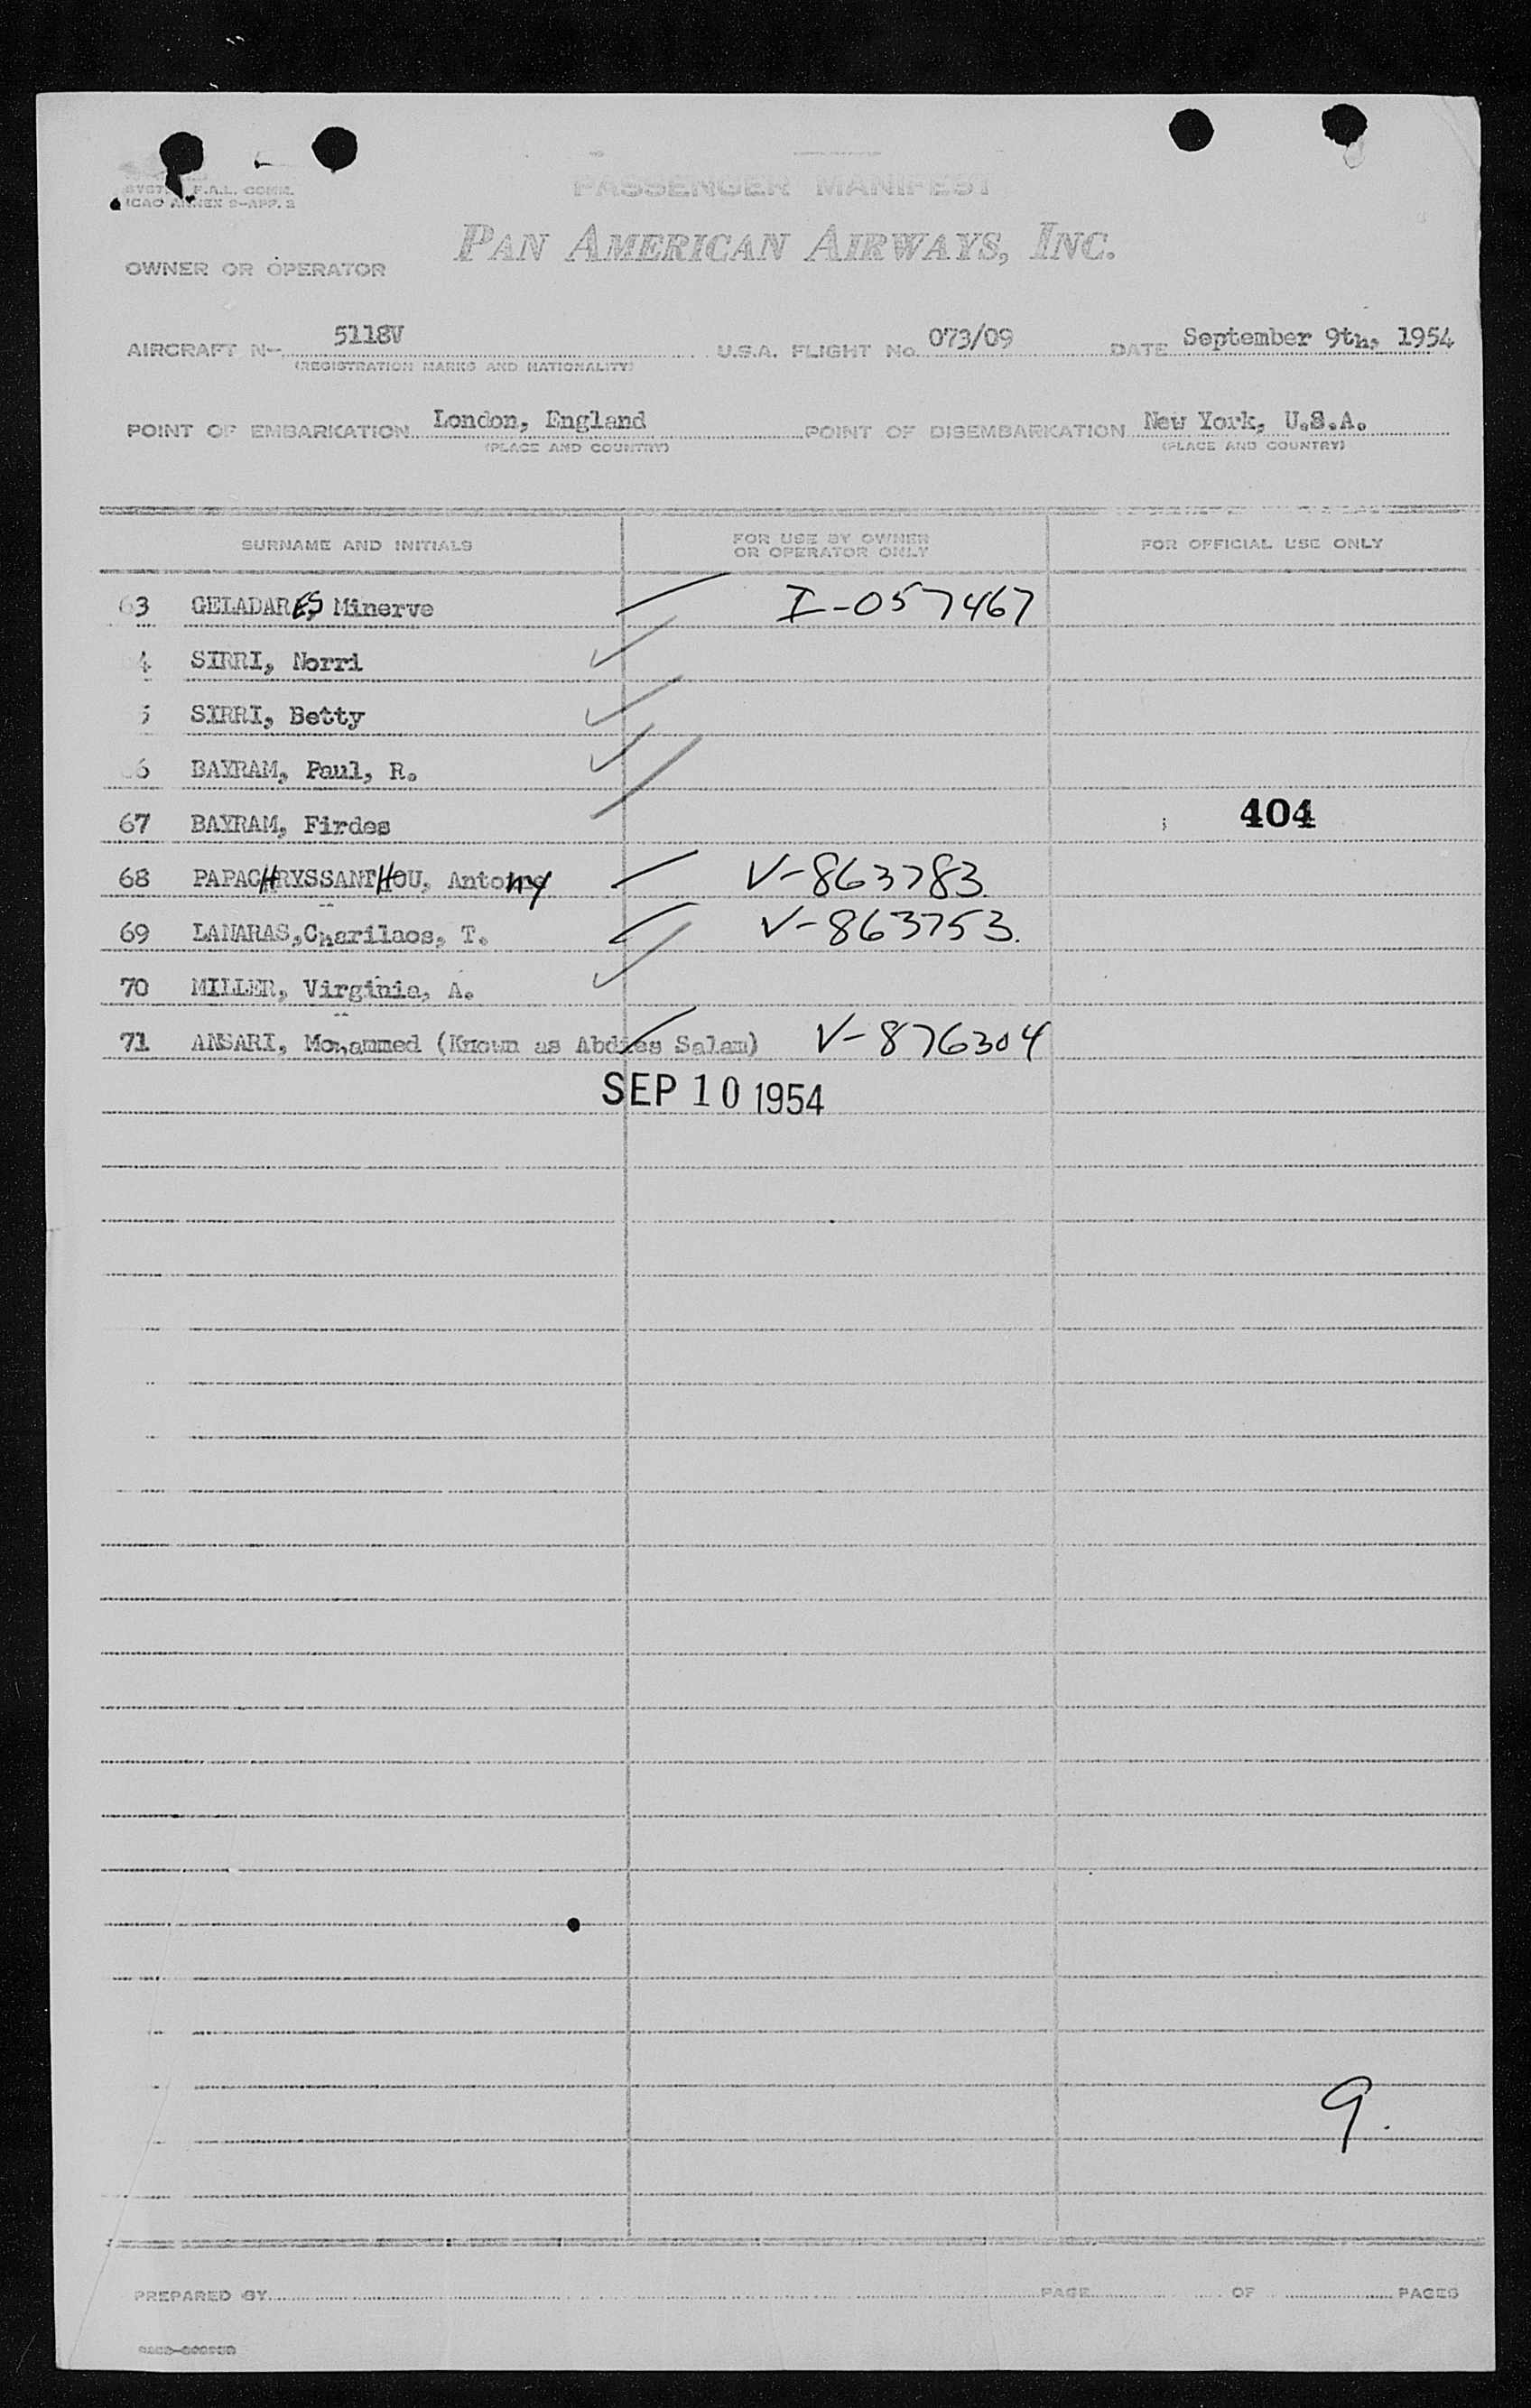 SYST. F.A.L. COMM.
ICAO ANNEX 9-APP. 2
PASSENGER MANIFEST
PAN AMERICAN AIRWAYS, INC.
OWNER OR OPERATOR
AIRCRAFT N- 5118V U.S.A. FLIGHT No. 073/09 DATE September 9th, 1954
(REGISTRATION MARKS AND NATIONALITY)
POINT OF EMBARKATION London, England POINT OF DISEMBARKATION New York, U.S.A.
(PLACE AND COUNTRY) (PLACE AND COUNTRY)
SURNAME AND INITIALS FOR USE BY OWNER OR OPERATOR ONLY FOR OFFICIAL USE ONLY
63 GELADARES Minerve I-057467
4 SIRRI, Norri
5 SIRRI, Betty
66 BAYRAM, Paul, R.
67 BAYRAM, Firdes 404
68 PAPACHRYSSANTHOU, Antony V-863783
69 LANARAS, Charilaos, T. V-863753.
70 MILLER, Virginia, A.
71 ANSARI, Mohammed (Known as Salam) V-876304
SEP 10 1954
9.
PREPARED BY PAGE OF PAGES